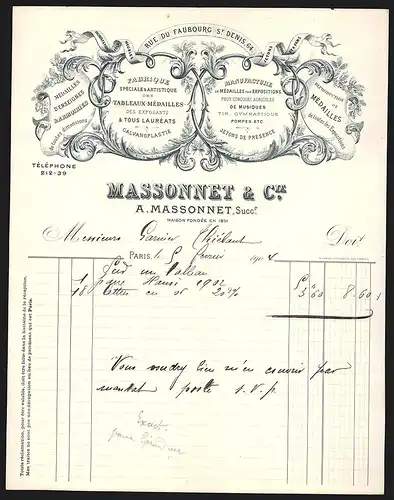 RUE DU FAUBOURG ST DENIS, 64
PARIS
MÉDAILLES
D'ENSEIGNES
FABRIQUE
SPÉCIALE & ARTISTIQUE
DES
TABLEAUX-MÉDAILLES
DES EXPOSANTS
& TOUS LAURÉATS
GALVANOPLASTIE
MANUFACTURE
DE MÉDAILLES POUR EXPOSITIONS
POUR CONCOURS AGRICOLES
DE MUSIQUES
TIR, GYMNASTIQUE
POMPES, ETC
JETONS DE PRÉSENCE
REPRODUCTION
DE
MÉDAILLES
de toutes les Expositions
TÉLÉPHONE
212-39
MASSONNET & CIE
A. MASSONNET, Succr.
MAISON FONDÉE EN 1851
Messieurs Garnier Thiébaut Doit
PARIS, le 5 février 1904
1
18 lettres en or 20%
3 60 8.60
Vous voudrez bien m'en couvrir par
mandat poste s.v.p.
Toute réclamation, pour être valable, doit être faite dans la huitaine de la réception.
Mes traites ne sont pas une dérogation au lieu de paiement qui est Paris.